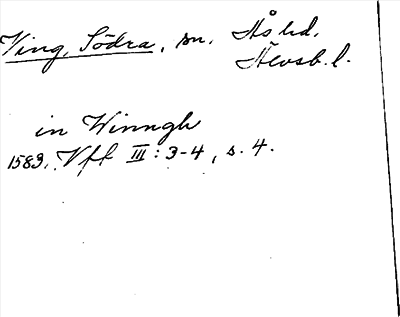 Ving, Södra, sn. Ås hd.
Älvsb. l.
in Winngh
1583. Vff III: 3-4, s. 4.